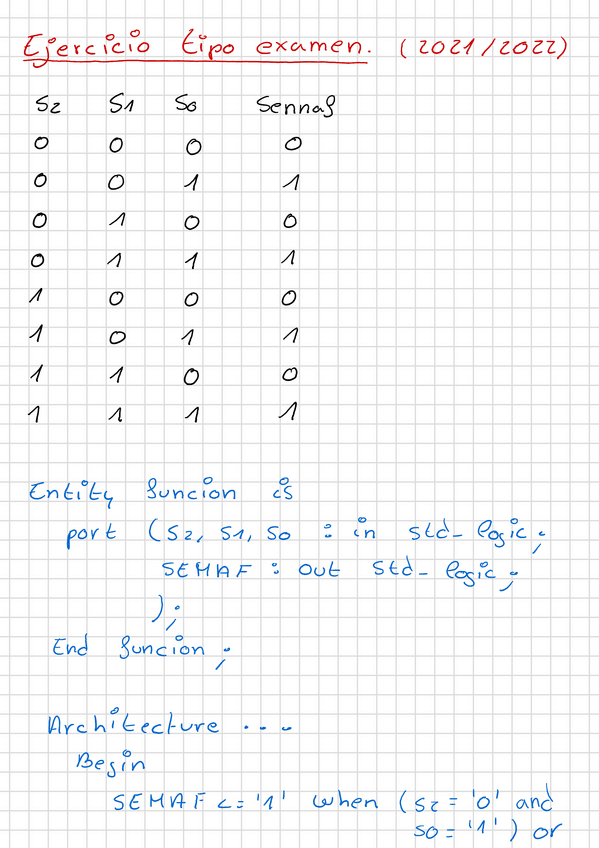 Ejercicio tipo examen. (2021/2022)
S2 S1 S0 Semaf
0 0 0 0
0 0 1 1
0 1 0 0
0 1 1 1
1 0 0 0
1 0 1 1
1 1 0 0
1 1 1 1
Entity funcion is
port (S2, S1, S0 : in std_logic;
SEMAF : out std_logic;
);
End funcion;
Architecture ...
Begin
SEMAF <= '1' when (S2 = '0' and
S0 = '1') or